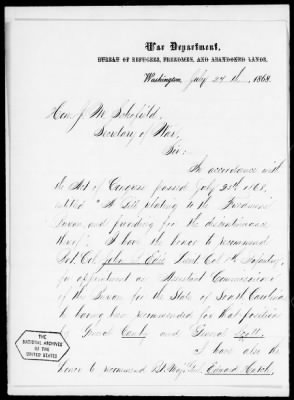 War Department,
BUREAU OF REFUGEES, FREEDMEN, AND ABANDONED LANDS,
Washington, July 24th, 1868.
Hon. J. M. Schofield,
Secretary of War,
Sir:
In accordance with
the Act of Congress passed July 1868,
entitled "A Bill relating to the Freedmen's
Bureau and providing for the discontinuance
thereof", I have the honor to recommend
Bvt. Col. John R. Edie Lieut Col. 8th Infantry,
for appointment as Assistant Commissioner
of the Bureau for the State of South Carolina
he having been recommended for that position
by General Canby and General Scott.
I have also the
honor to recommend Bt. Maj. Genl. Edward Hatch,
THE
NATIONAL ARCHIVES
OF THE
UNITED STATES